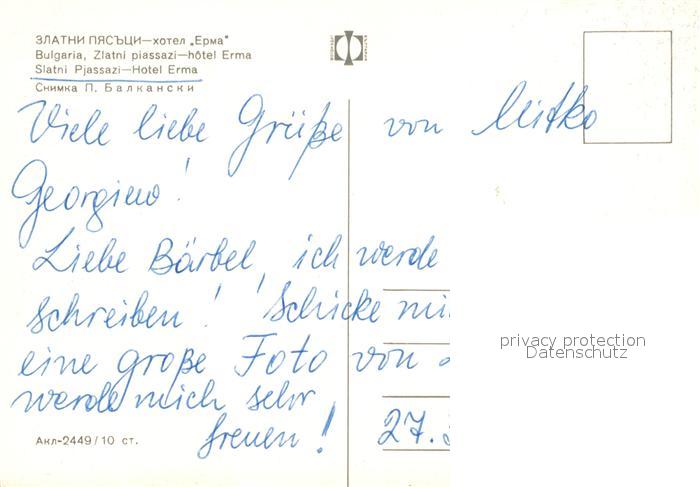 ЗЛАТНИ ПЯСЪЦИ—хотел „Ерма"
Bulgaria, Zlatni piassazi—hôtel Erma
Slatni Pjassazi—Hotel Erma
Снимка П. Балкански
Viele liebe Grüße von Mitko
Georgiev!
Liebe Bärbel, ich werde
schreiben! Schicke
eine große Foto von
werde mich sehr
freuen!
27.
privacy protection
Datenschutz
Акл-2449/10 ст.